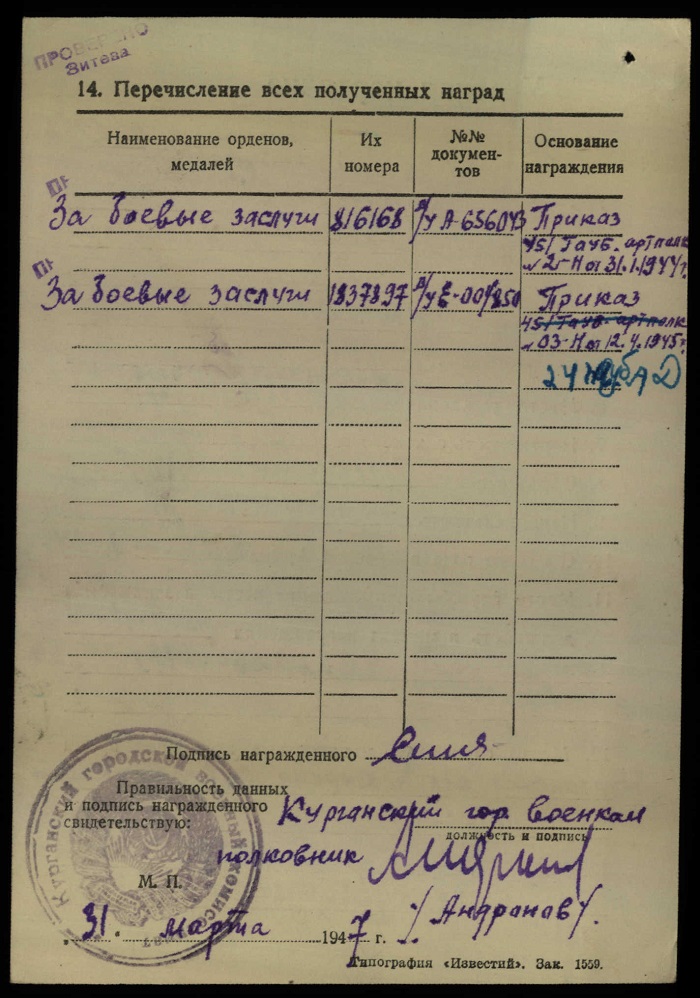 ПРОВЕРЕНО
Зитева
14. Перечисление всех полученных наград
Наименование орденов, медалей
Их номера
№№ документов
Основание награждения
За боевые заслуги 816168 в/у А-656043 Приказ
451 Гауб. артполк
№ 25-Н от 31.1.1944 г.
За боевые заслуги 1837897 в/у Е-001850 Приказ
451 Гауб. артполк
№ 03-Н от 12.4.1945 г.
24
Подпись награжденного
Правильность данных
и подпись награжденного
свидетельствую:
Курганский гор военком
должность и подпись
полковник
М. П.
/Андранав/
31 марта 1947 г.
Курганский городской военный комиссариат
Типография «Известий». Зак. 1559.